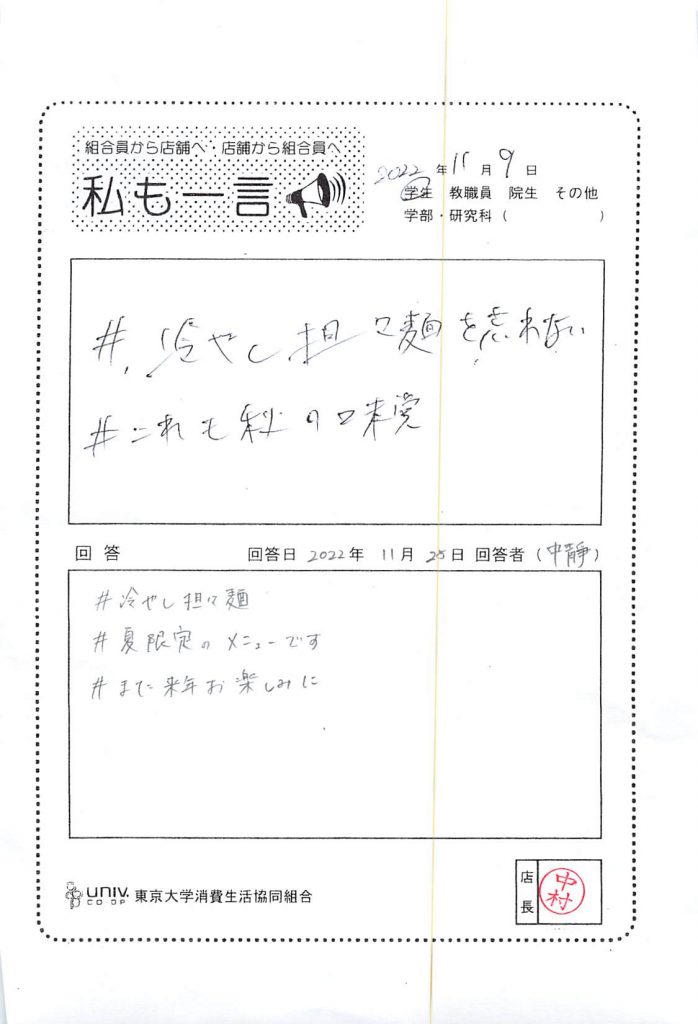 組合員から店舗へ・店舗から組合員へ
私も一言
2022年11月9日
学生 教職員 院生 その他
学部・研究科( )
#冷やし担々麺を忘れない
#これも秋の味覚
回答 回答日 2022年 11月 25日 回答者(中静)
#冷やし担々麺
#夏限定のメニューです
#また来年お楽しみに
UNIV. CO-OP 東京大学消費生活協同組合
店長 中村